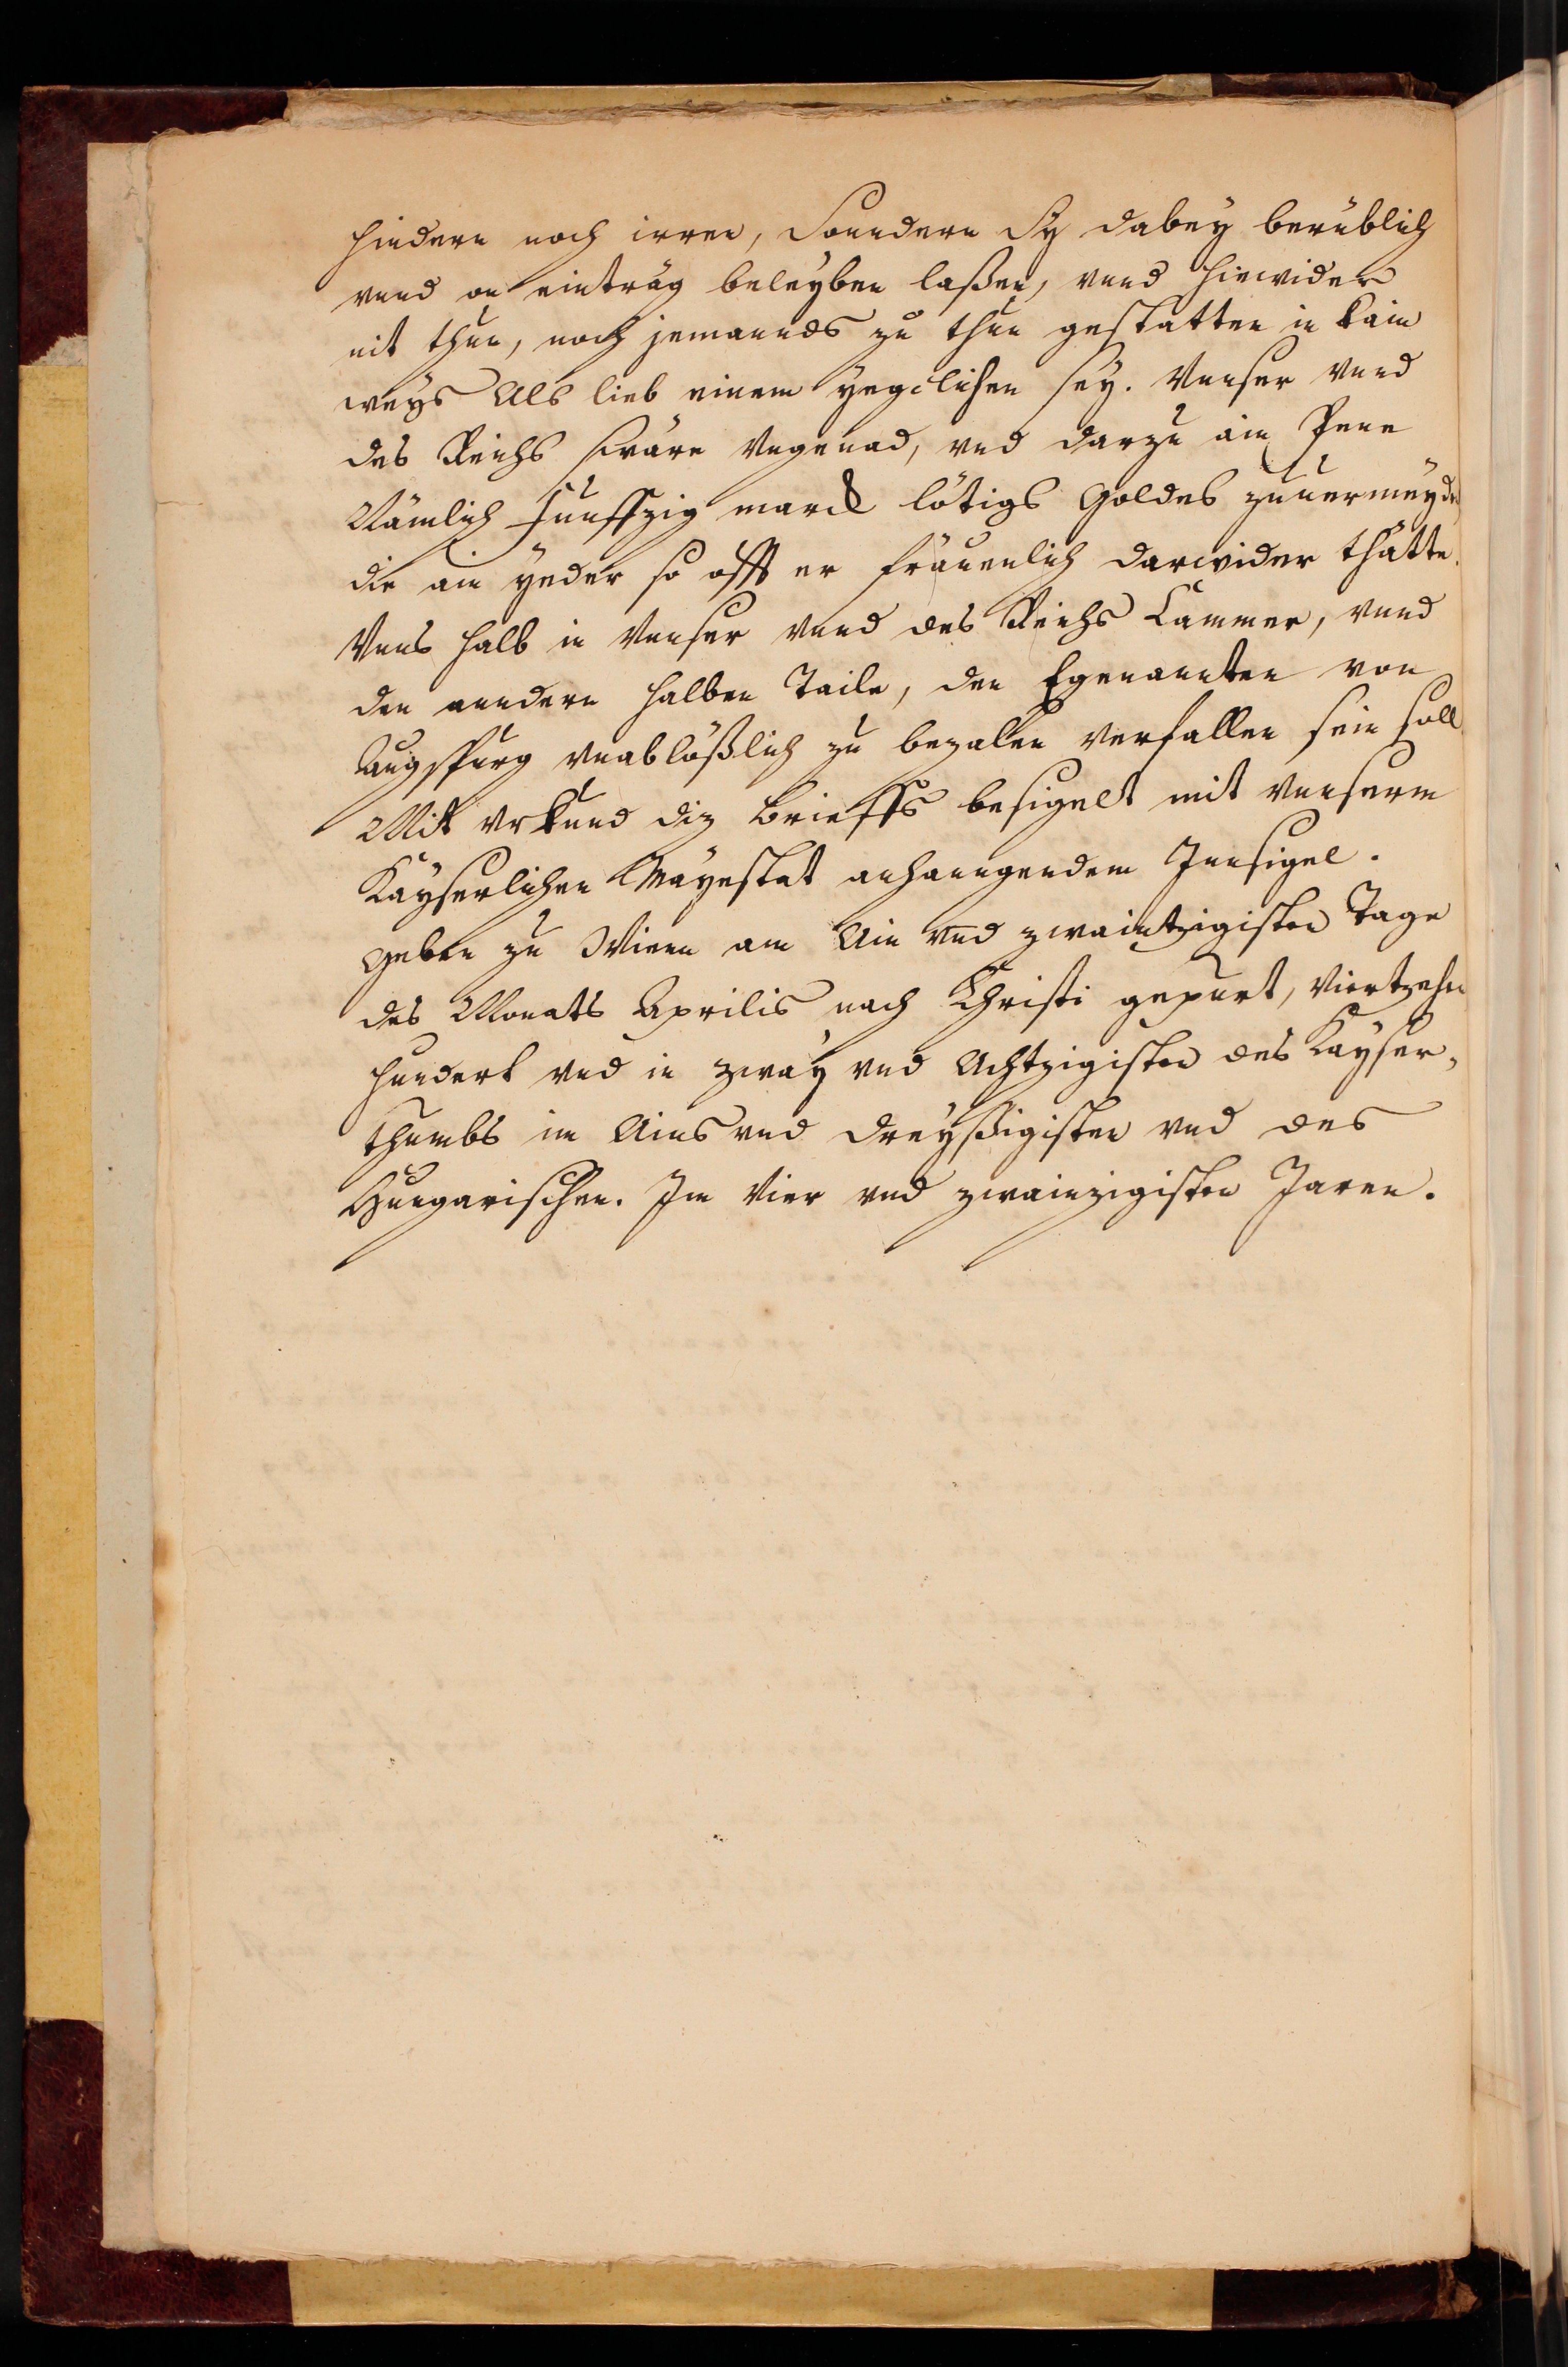 hindern noch irren, Sonndern Sy dabey berüblich
vnnd on einträg beleyben laßen, vnnd hiewider
nit thun, noch jemannds zu thun gestatten in kain
weys Als lieb einem yegclichen sey. Vnnser vnnd
des Reichs swäre Vngenad, vnd darzu ain Pene
Nämlich Funffzig marck lötigs Goldes zuuermeyden
die ain yeder so offt er fräuenlich darwider thätte.
Vnns halb in Vnnser vnnd des Reichs Cammer, vnnd
den anndern halben Taile, den Egenannten von
Augspurg vnablößlich zu bezalen verfallen sein soll
Mit vrkund diz Brieffs besigelt mit vnnserm
Kayserlichen Mayestat anhanngendem Innsigel.
Geben zu Wienn am Ain vnd zwaintzigisten Tage
des Monats Aprilis nach Christi gepurt, Viertzehn
hundert vnd in zway vnd Achtzigisten des Kayser,
thumbs im Ains vnd dreyssigisten vnd des
Hungarischen. Im Vier vnd zwainzigisten Jaren.